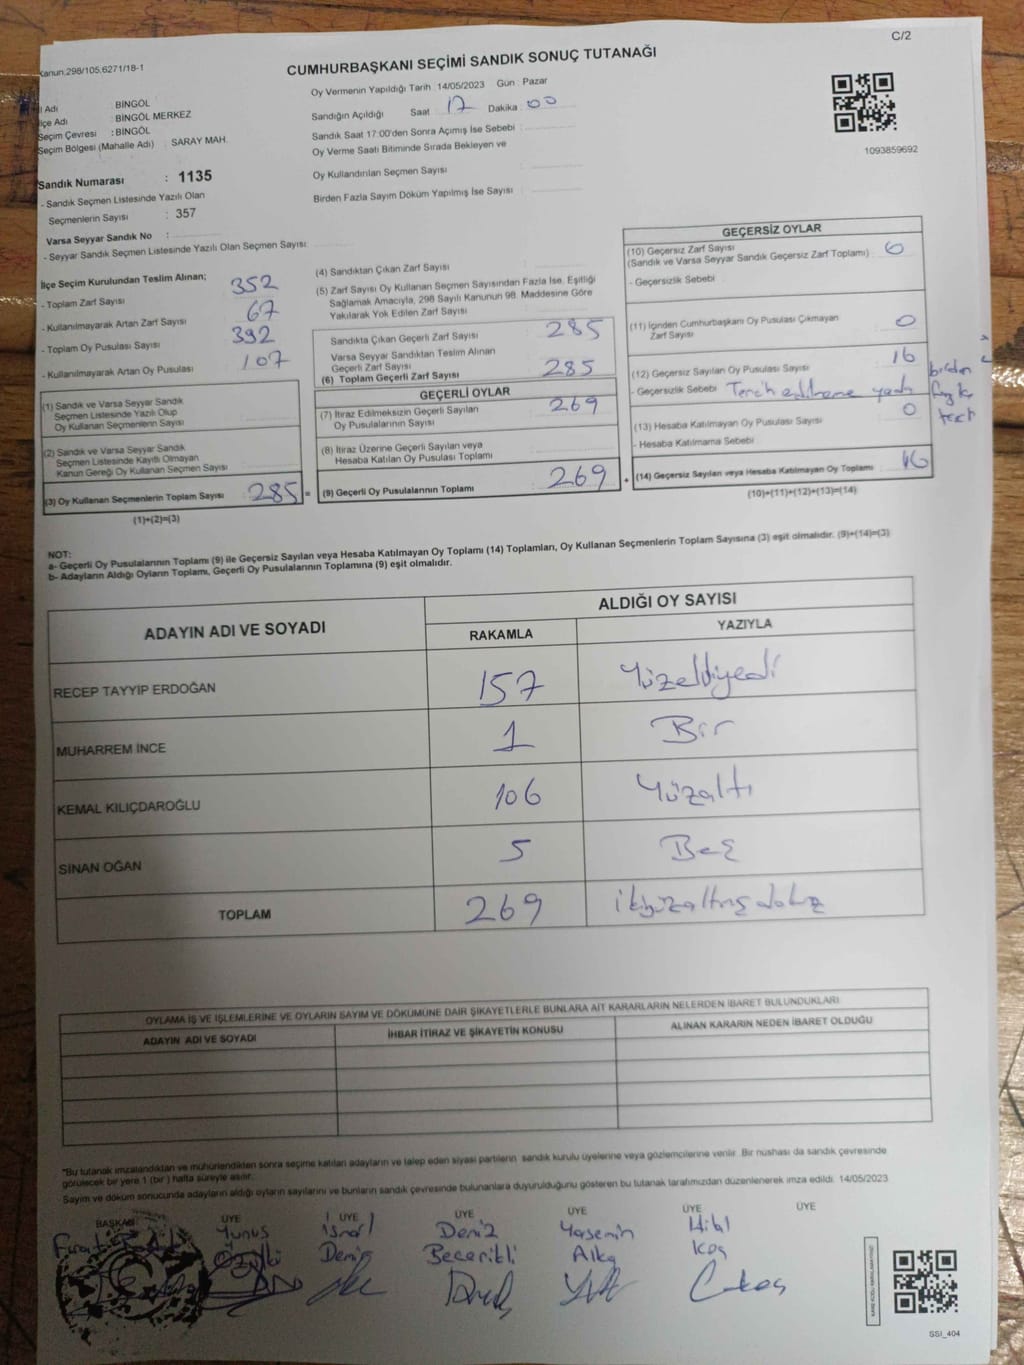 C/2
Kanun.298/105,6271/18-1
CUMHURBAŞKANI SEÇİMİ SANDIK SONUÇ TUTANAĞI
Oy Vermenin Yapıldığı Tarih :14/05/2023 Gün : Pazar
Sandığın Açıldığı Saat 17 Dakika 00
Sandık Saat 17:00'den Sonra Açımış İse Sebebi :
Oy Verme Saati Bitiminde Sırada Bekleyen ve
Oy Kullandırılan Seçmen Sayısı
Birden Fazla Sayım Döküm Yapılmış İse Sayısı :
1093859692
İl Adı : BİNGÖL
İlçe Adı : BİNGÖL MERKEZ
Seçim Çevresi : BİNGÖL
Seçim Bölgesi (Mahalle Adı) : SARAY MAH.
Sandık Numarası : 1135
- Sandık Seçmen Listesinde Yazılı Olan
Seçmenlerin Sayısı : 357
Varsa Seyyar Sandık No :
- Seyyar Sandık Seçmen Listesinde Yazılı Olan Seçmen Sayısı:
İlçe Seçim Kurulundan Teslim Alınan;
- Toplam Zarf Sayısı 352
- Kullanılmayarak Artan Zarf Sayısı 67
- Toplam Oy Pusulası Sayısı 392
- Kullanılmayarak Artan Oy Pusulası 107
(1) Sandık ve Varsa Seyyar Sandık
Seçmen Listesinde Yazılı Olup
Oy Kullanan Seçmenlerin Sayısı
(2) Sandık ve Varsa Seyyar Sandık
Seçmen Listesinde Kayıtlı Olmayan
Kanun Gereği Oy Kullanan Seçmen Sayısı
(3) Oy Kullanan Seçmenlerin Toplam Sayısı 285 =
(1)+(2)=(3)
(4) Sandıktan Çıkan Zarf Sayısı
(5) Zarf Sayısı Oy Kullanan Seçmen Sayısından Fazla İse, Eşitliği
Sağlamak Amacıyla, 298 Sayılı Kanunun 98. Maddesine Göre
Yakılarak Yok Edilen Zarf Sayısı
Sandıkta Çıkan Geçerli Zarf Sayısı 285
Varsa Seyyar Sandıktan Teslim Alınan
Geçerli Zarf Sayısı
(6) Toplam Geçerli Zarf Sayısı 285
GEÇERLİ OYLAR
(7) İtiraz Edilmeksizin Geçerli Sayılan
Oy Pusulalarının Sayısı 269
(8) İtiraz Üzerine Geçerli Sayılan veya
Hesaba Katılan Oy Pusulası Toplamı
(9) Geçerli Oy Pusulalarının Toplamı 269 +
GEÇERSİZ OYLAR
(10) Geçersiz Zarf Sayısı 0
(Sandık ve Varsa Seyyar Sandık Geçersiz Zarf Toplamı)
- Geçersizlik Sebebi
(11) İçinden Cumhurbaşkanı Oy Pusulası Çıkmayan
Zarf Sayısı 0
(12) Geçersiz Sayılan Oy Pusulası Sayısı 16
- Geçersizlik Sebebi
(13) Hesaba Katılmayan Oy Pusulası Sayısı 0
- Hesaba Katılmama Sebebi
(14) Geçersiz Sayılan veya Hesaba Katılmayan Oy Toplamı 16
(10)+(11)+(12)+(13)=(14)
NOT:
a- Geçerli Oy Pusulalarının Toplamı (9) ile Geçersiz Sayılan veya Hesaba Katılmayan Oy Toplamı (14) Toplamları, Oy Kullanan Seçmenlerin Toplam Sayısına (3) eşit olmalıdır. (9)+(14)=(3)
b- Adayların Aldığı Oyların Toplamı, Geçerli Oy Pusulalarının Toplamına (9) eşit olmalıdır.
ADAYIN ADI VE SOYADI ALDIĞI OY SAYISI
RAKAMLA YAZIYLA
RECEP TAYYİP ERDOĞAN 157 Yüzelliyedi
MUHARREM İNCE 1 Bir
KEMAL KILIÇDAROĞLU 106 Yüzaltı
SİNAN OĞAN 5 Beş
TOPLAM 269 ikiyüzaltmışdokuz
OYLAMA İŞ VE İŞLEMLERİNE VE OYLARIN SAYIM VE DÖKÜMÜNE DAİR ŞİKAYETLERLE BUNLARA AİT KARARLARIN NELERDEN İBARET BULUNDUKLARI
ADAYIN ADI VE SOYADI İHBAR İTİRAZ VE ŞİKAYETİN KONUSU ALINAN KARARIN NEDEN İBARET OLDUĞU
"Bu tutanak imzalandıktan ve mühürlendikten sonra seçime katılan adayların ve talep eden siyasi partilerin sandık kurulu üyelerine veya gözlemcilerine verilir. Bir nüshası da sandık çevresinde
görülecek bir yere 1 (bir) hafta süreyle asılır.
Sayım ve döküm sonucunda adayların aldığı oyların sayılarını ve bunların sandık çevresinde bulunanlara duyurulduğunu gösteren bu tutanak tarafımızdan düzenlenerek imza edildi. 14/05/2023
BAŞKAN ÜYE ÜYE ÜYE ÜYE ÜYE ÜYE
Yunus İsmail Deniz Yasemin Hilal
Deniz Becerikli Alka Koç
SSI_404